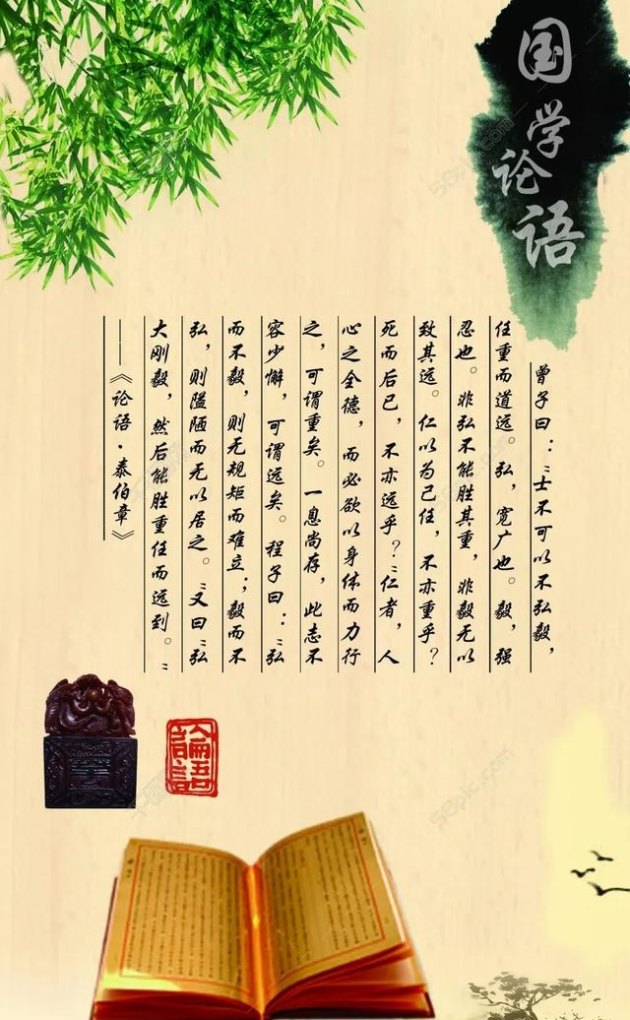 国学论语
曾子曰：“士不可以不弘毅，
任重而道远。弘，宽广也。毅，强
忍也。非弘不能胜其重，非毅无以
致其远。仁以为己任，不亦重乎？
死而后已，不亦远乎？“仁者，人
心之全德，而必欲以身体而力行
之，可谓重矣。一息尚存，此志不
容少懈，可谓远矣。程子曰：“弘
而不毅，则无规矩而难立；毅而不
弘，则隘陋而无以居之。”又曰“弘
大刚毅，然后能胜重任而远到。”
——《论语·泰伯章》
論語